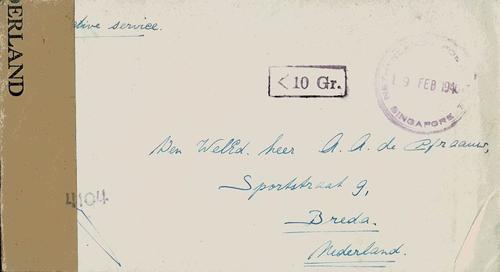 DERLAND
active service.
< 10 Gr.
19 FEB 194
SINGAPORE
Den WelEd. heer A. A. de
Sportstraat 9,
4104
Breda.
Nederland.